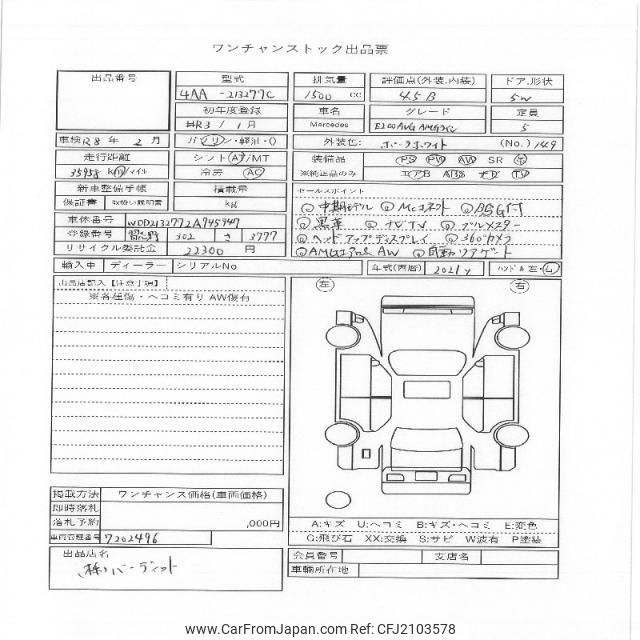 ワンチャンストック出品票
出品番号 型式 排気量 評価点(外装.内装) ドア.形状
4AA -213277C 1500 cc 4.5 B 5W
初年度登録 車名 グレード 定員
R3/1月 Mercedes E200AVG AMGライン 5
車検 R8年 2月 ガソリン・軽油・() 外装色: ポーラホワイト (No.) 149
走行距離 シフト AT/MT 装備品 PS PW AW SR
35958 Km/マイル 冷房 AC ※純正品のみ エアB ABS ナビ TV
新車整備手帳 積載量 セールスポイント
保証書 取扱い説明書 kg 中期モデル Mcコネクト BSG付
車体番号 WDD2132772A945947 黒革 ナビTV フルメーター
登録番号 302 さ 3777 ヘッドアップディスプレイ 360°カメラ
リサイクル委託金 22300 円 AMG AW 自動リアゲート
輸入車 ディーラー シリアルNo 年式(西暦) 2021y ハンドル 左・右
出品店記入【注意事項】 左 右
※各種傷・ヘコミ有り AW傷付
掲載方法 ワンチャンス価格(車両価格)
即時落札
落札予約 ,000円
車両管理番号 7202496
A:キズ U:ヘコミ B:キズ・ヘコミ E:変色
G:飛び石 XX:交換 S:サビ W波有 P塗装
出品店名 会員番号 支店名
㈱バーディット 車輌所在地
www.CarFromJapan.com Ref: CFJ2103578